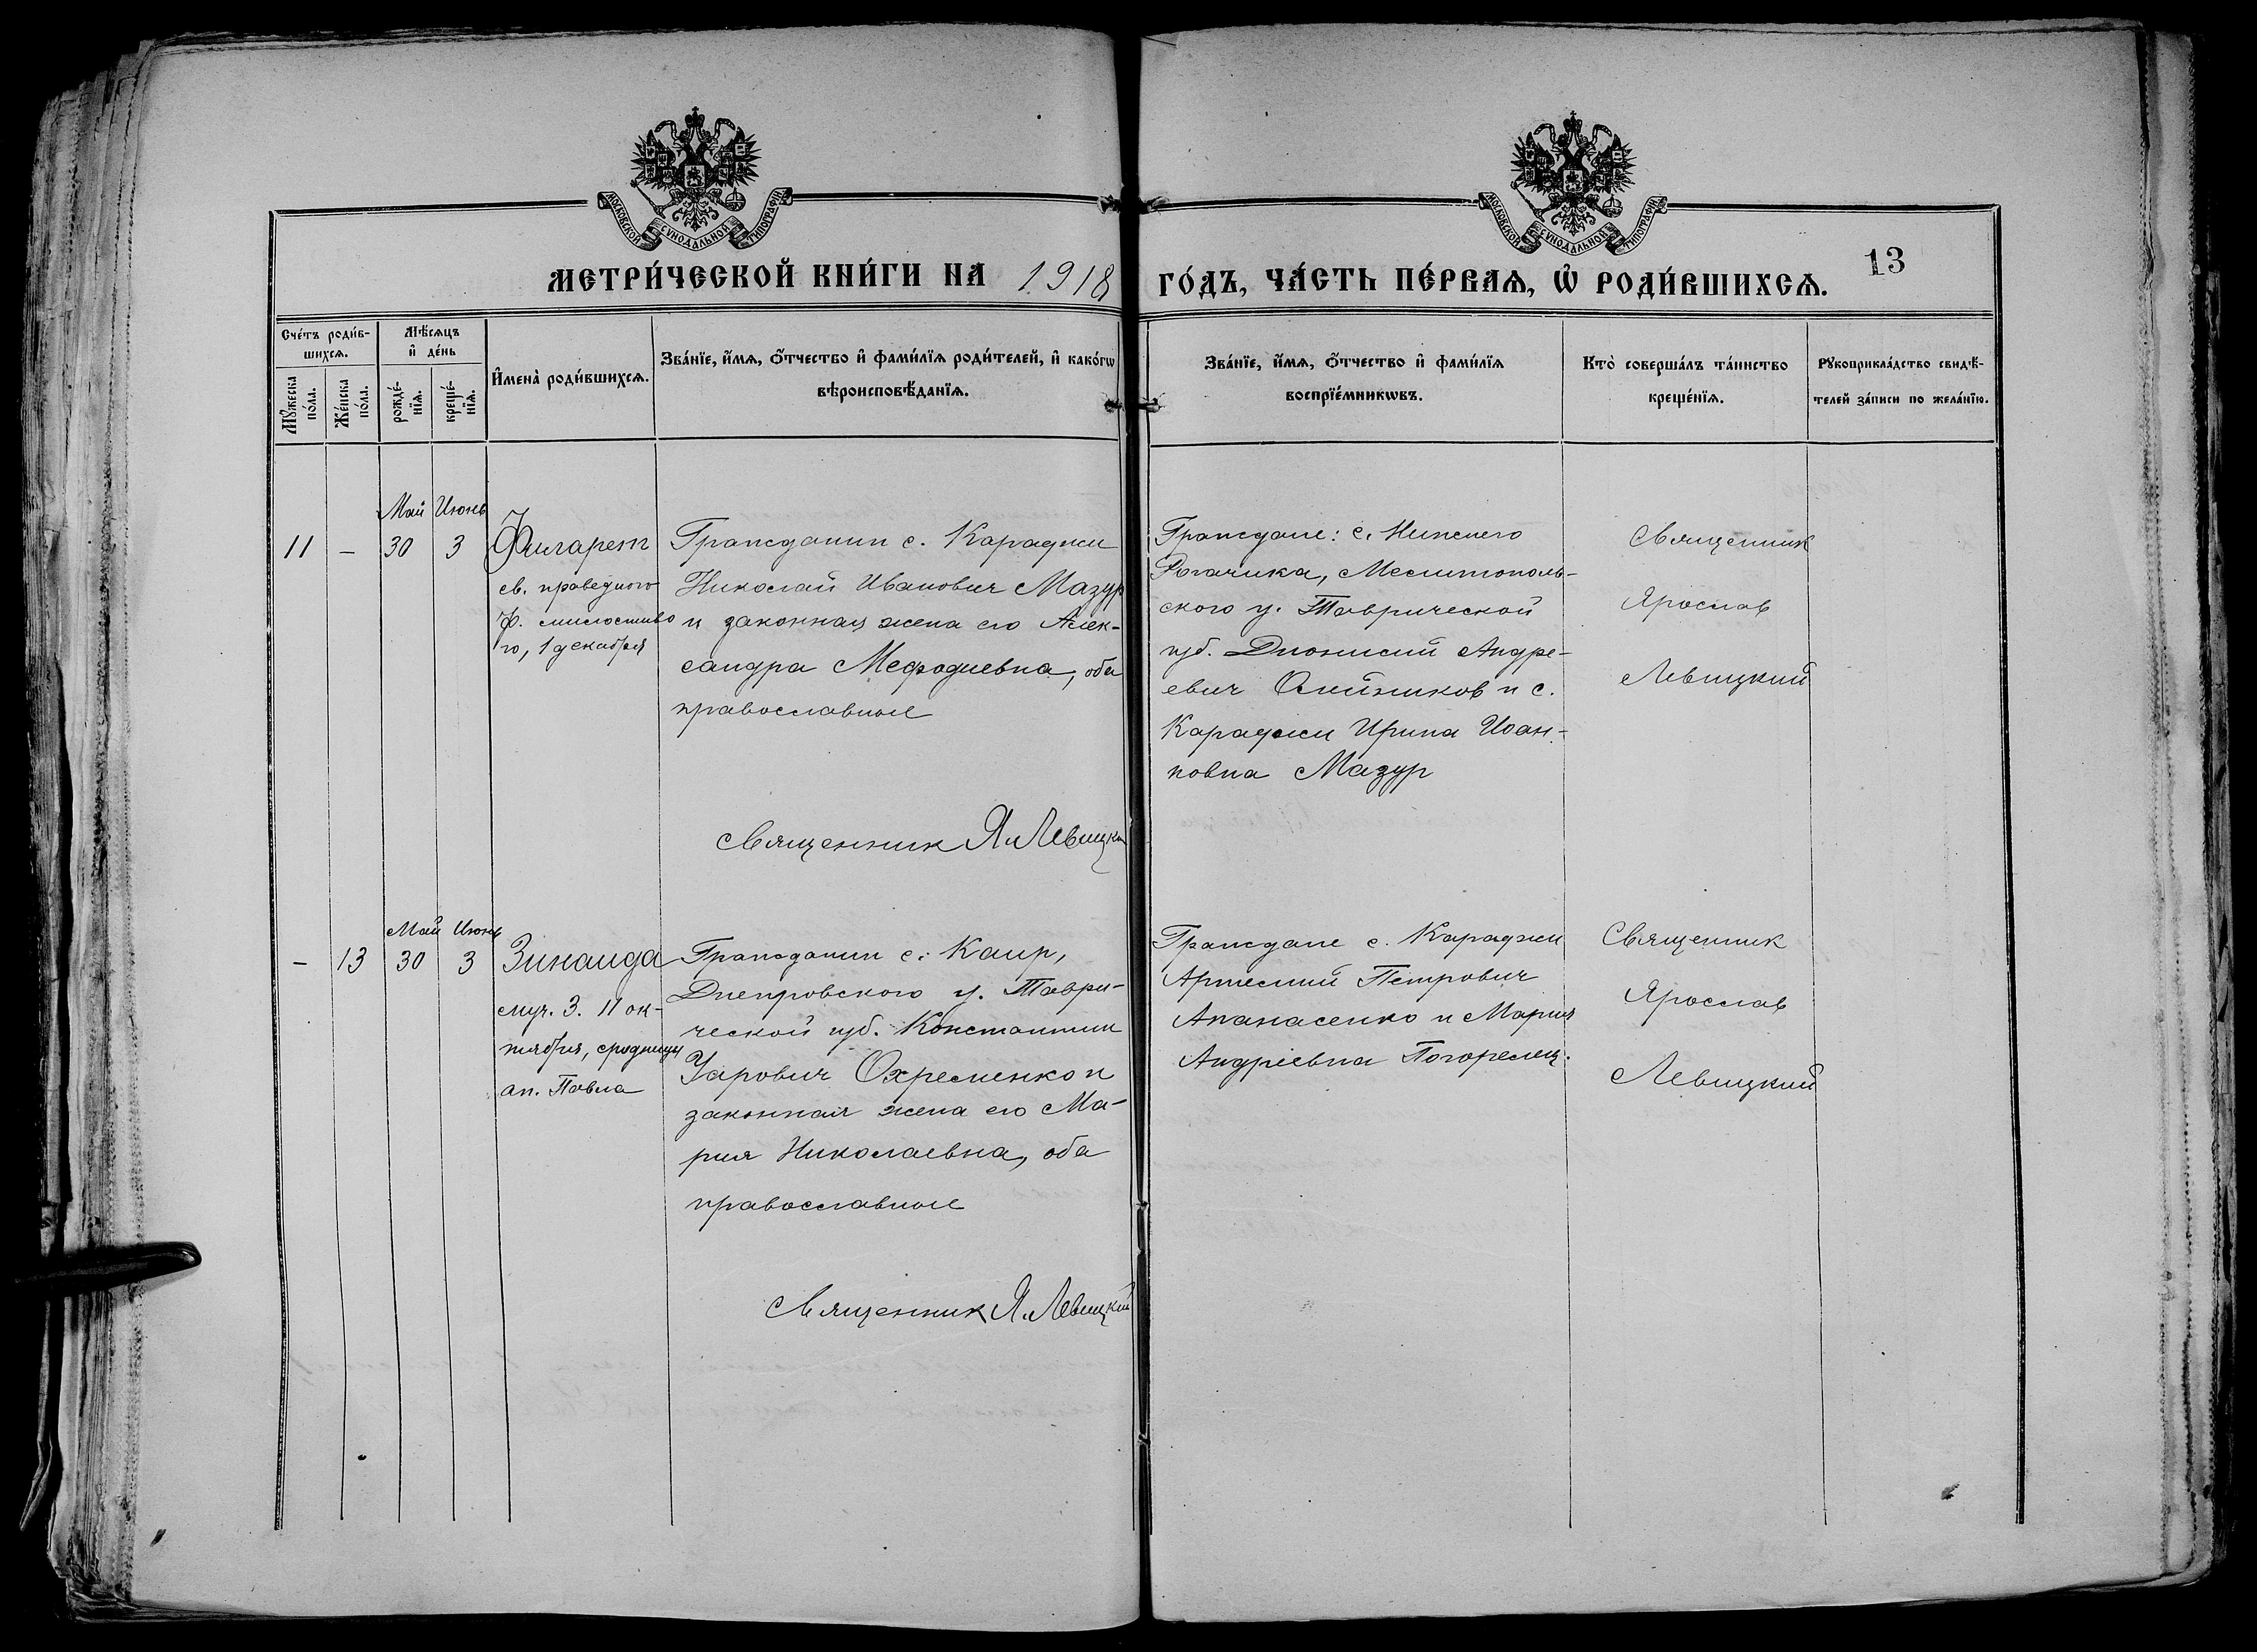 МОСКОВСКОЙ СУНОДАЛЬНОЙ ТИПОГРАФІИ
МОСКОВСКОЙ СУНОДАЛЬНОЙ ТИПОГРАФІИ
МЕТРИ́ЧЕСКОЙ КНИ́ГИ НА 1918
ГО́ДЪ, ЧА́СТЬ ПЕ́РВАѦ, Ѡ҆ РОДИ́ВШИХСѦ.
13
Сче́тъ роди́в-
шихсѧ.
Мѣ́сѧцъ
и҆ де́нь
Мꙋ́жеска
по́ла.
Же́нска
по́ла.
рожде́-
нїѧ.
креще́-
нїѧ.
И҆мена̀ роди́вшихсѧ.
Зва́нїе, и҆́мѧ, ѻ҆́тчество и҆ фами́лїѧ роди́телей, и҆ како́гѡ
вѣроисповѣ́данїѧ.
Зва́нїе, и҆́мѧ, ѻ҆́тчество и҆ фами́лїѧ
воспрїе́мникѡвъ.
Кто̀ соверша́лъ та́инство
креще́нїѧ.
Рꙋкоприкла́дство свидѣ́-
телей за́писи по жела́нїю.
Май Июнь
11 – 30 3
Филарет
св. праведного
Ф. милостиво
го, 1 декабря
Гражданин с. Караджи
Николай Иванович Мазур
и законная жена его Алек-
сандра Мефодиевна, оба
православные
Священник Я. Левицкий
Граждане: с. Нижнего
Рогачика, Мелитополь-
ского у. Таврической
губ. Дионисий Андре-
евич Олийников и с.
Караджи Ирина Иоан-
новна Мазур
Священник
Ярослав
Левицкий
Май Июнь
– 13 30 3
Зинаида
муч. З. 11 ок-
тября, сродницы
ап. Павла
Гражданин с. Каир,
Днепровского у. Таври-
ческой губ. Константин
Уарович Охременко и
законная жена его Ма-
рия Николаевна, оба
православные
Священник Я. Левицкий
Граждане с. Караджи
Артемий Петрович
Апанасенко и Мария
Андріевна Погорелец.
Священник
Ярослав
Левицкий